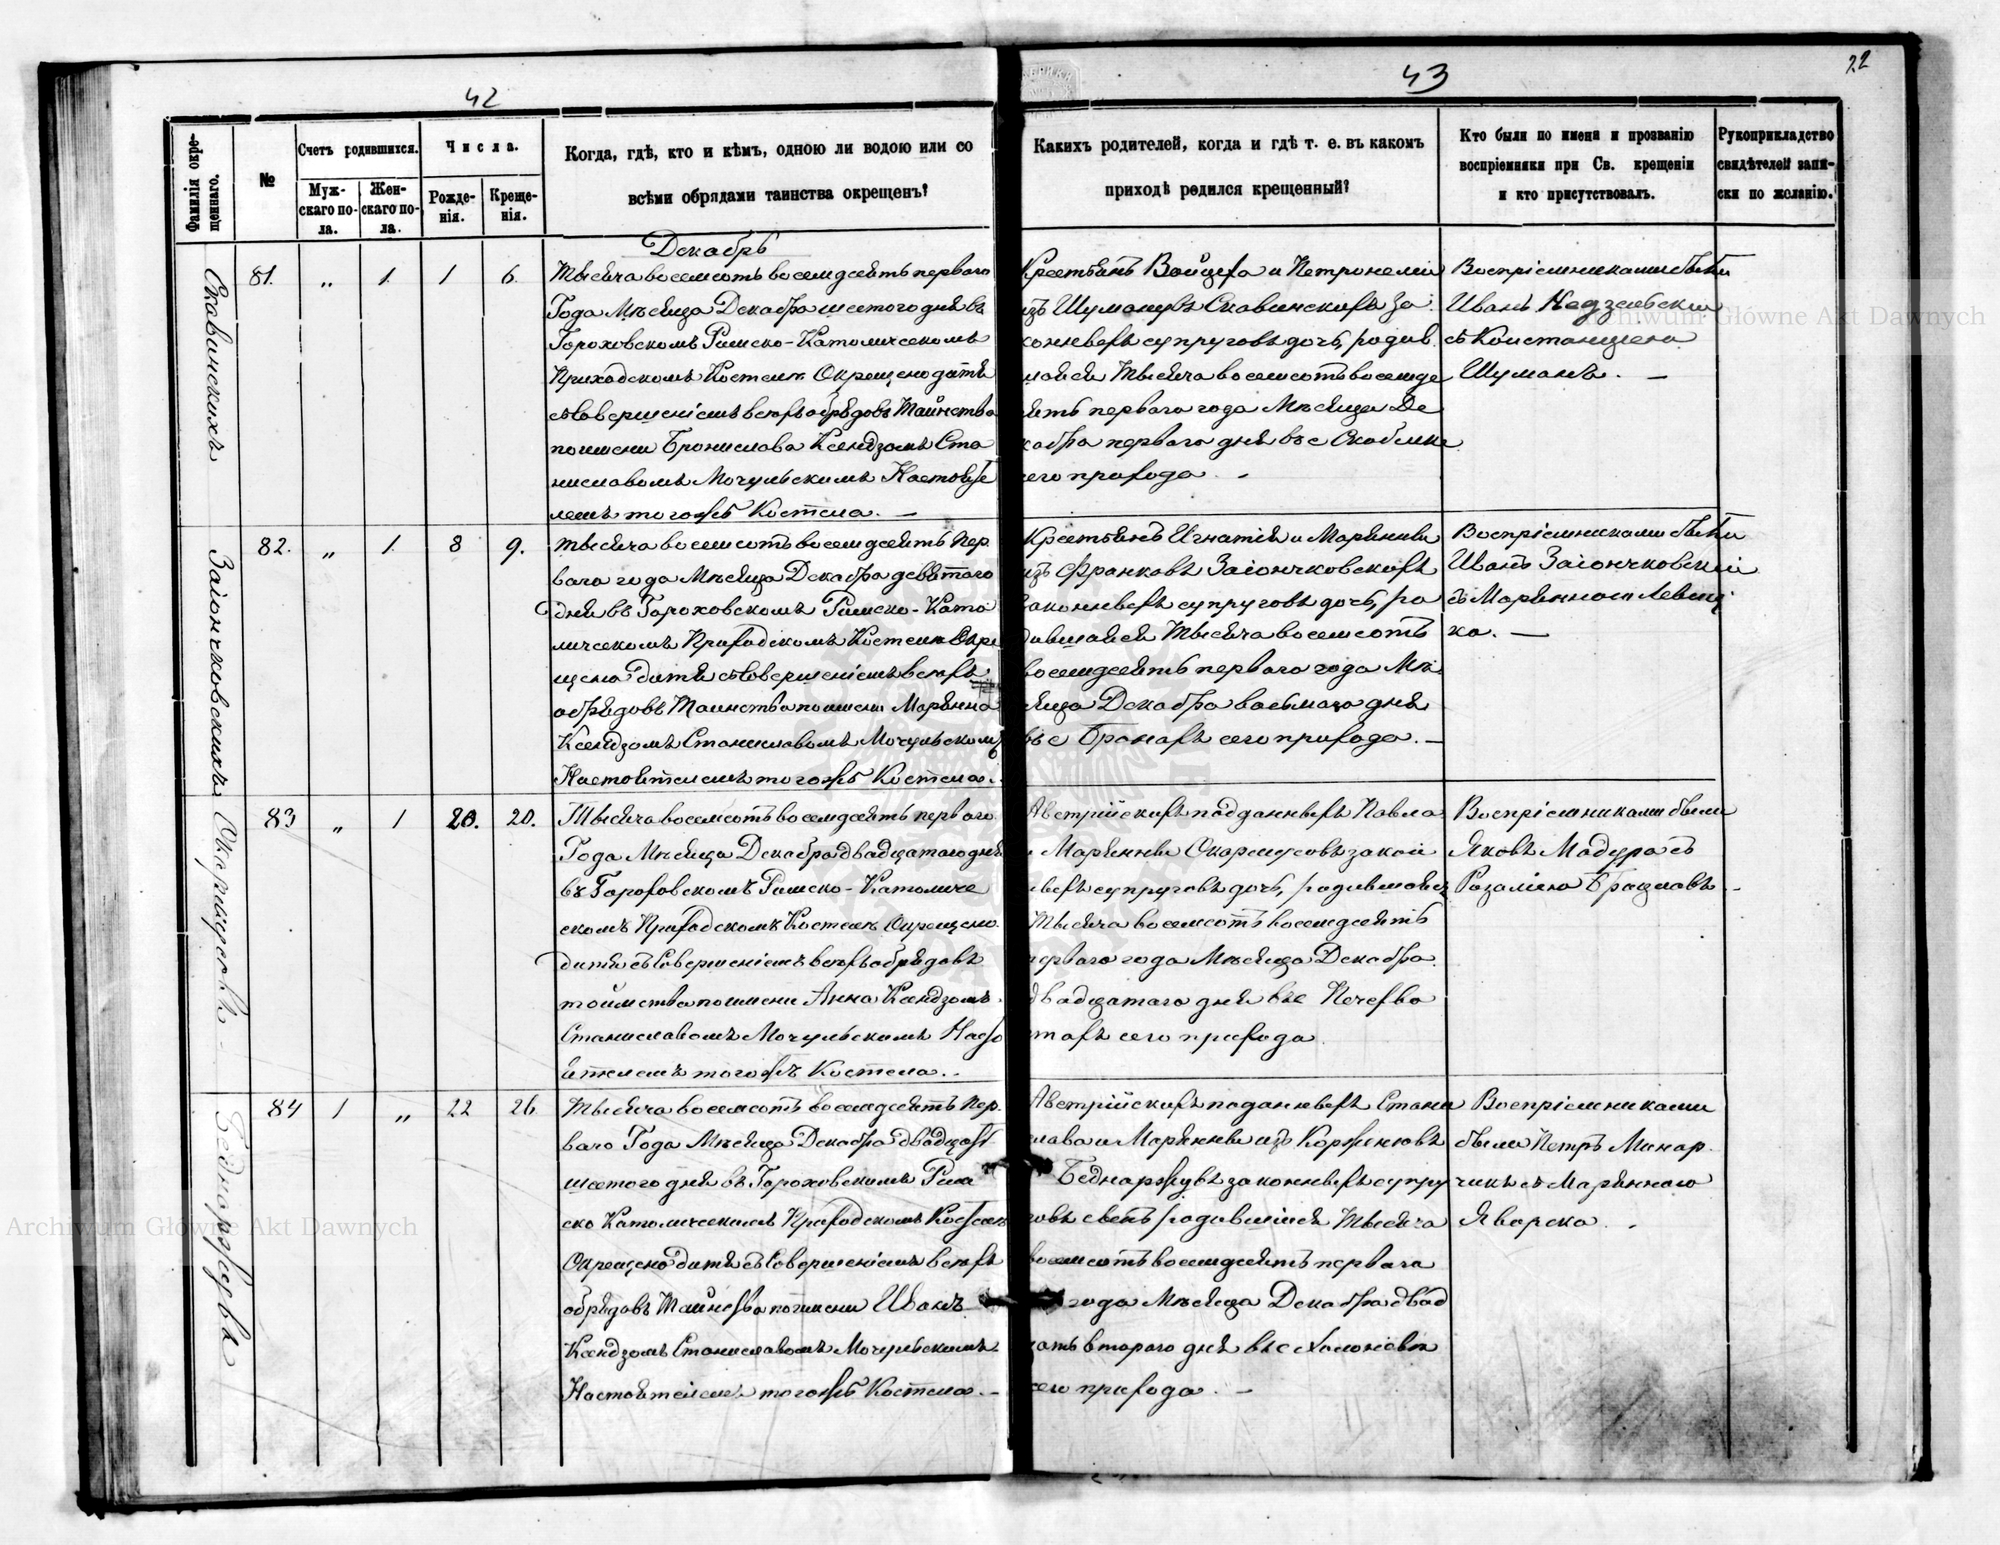 42
43
22
Фамилія окре-
щеннаго.
№
Счетъ родившихся.
Муж-
скаго по-
ла.
Жен-
скаго по-
ла.
Числа.
Рожде-
нія.
Креще-
нія.
Когда, гдѣ, кто и кѣмъ, одною ли водою или со
всѣми обрядами таинства окрещенъ?
Какихъ родителей, когда и гдѣ т. е. въ какомъ
приходѣ родился крещенный?
Кто были по имени и прозванію
воспріемники при Св. крещеніи
и кто присутствовалъ.
Рукоприкладство
свидѣтелей запи-
ски по желанію.
Декабрь
Скавинскихъ
81. „ 1 1 6
Тысяча восемсотъ восемдесятъ перваго
Года Мѣсяца Декабра шестого дня въ
Гороховскомъ Римско-Католическомъ
Приходскомъ Костелѣ Окрещено дитя
съ Совершеніемъ всѣхъ обрядовъ Таинства
по имени Бронислава Ксендзомъ Ста
ниславомъ Мочульскимъ Настояте
лемъ тогожъ Костела. —
Крестьянъ Войцеха и Петронели
изъ Шумануvъ Скавинскихъ за
конныхъ супруговъ дочь, родив
шайся Тысяча восемсотъ восемде
сятъ перваго года Мѣсяца Де
кабра перваго дня въ с
сего прихода. —
Воспріемниками были
Иванъ
съ Констанціею
Шуманъ. —
Заіончковскихъ
82. „ 1 8 9.
тысяча восемсотъ восемдесятъ пер.
ваго года Мѣсяца Декабра девятого
дня въ Гороховскомъ Римско-Като
лическомъ Приходскомъ Костелѣ Окре
щено дитя съ Совершеніемъ всѣхъ
обрядовъ Таинства по имени Маріянна
Ксендзомъ Станиславомъ Мочульскимъ
Настоятелемъ тогожъ Костела.
Крестьянъ Игнатія и Маріянны
изъ Франковъ Заіончковскихъ
законныхъ супруговъ дочь, ро
дившайся Тысяча восемсотъ
восемдесятъ перваго года Мѣ
сяца Декабра восьмаго дня
въ с Бранахъ сего прихода. —
Воспріемниками были
Иванъ Заіончковскій
съ Маріянною
ка. —
83 „ 1 20. 20.
Тысяча восемсотъ восемдесятъ перваго
Года Мѣсяца Декабра двадцатаго дня
въ Гороховскомъ Римско-Католиче
скомъ Приходскомъ Костелѣ Окрещено
дитя съ Совершеніемъ всѣхъ обрядовъ
таинства по имени Анна Ксендзомъ
Станиславомъ Мочульскимъ Насто
ятелемъ тогожъ Костела. —
Австрійскихъ подданныхъ Павла
и Маріянны закон
ныхъ супруговъ дочь, родившаяся
Тысяча восемсотъ восемдесятъ
перваго года Мѣсяца Декабра
двадцатаго дня въ с
сего прихода
Воспріемниками были
Яковъ Мадура съ
Розаліею
Беднаржувъ
84 1 „ 22 26
Тысяча восемсотъ восемдесятъ пер.
ваго Года Мѣсяца Декабра двадцать
шестого дня въ Гороховскомъ Рим
ско Католическомъ Приходскомъ Костелѣ
Окрещено дитя съ Совершеніемъ всѣхъ
обрядовъ Таинства по имени Иванъ
Ксендзомъ Станиславомъ Мочульскимъ
Настоятелемъ тогожъ Костела. —
Австрійскихъ поданныхъ Стани
слава и Маріянны изъ
Беднаржувъ законныхъ супру
говъ сынъ, родившійся Тысяча
восемсотъ восемдесятъ перваго
года Мѣсяца Декабра двад
цать второго дня въ с
сего прихода. —
Воспріемниками
были Петръ
чикъ съ Маріянною
Яворска.
Archiwum Główne Akt Dawnych
Archiwum Główne Akt Dawnych